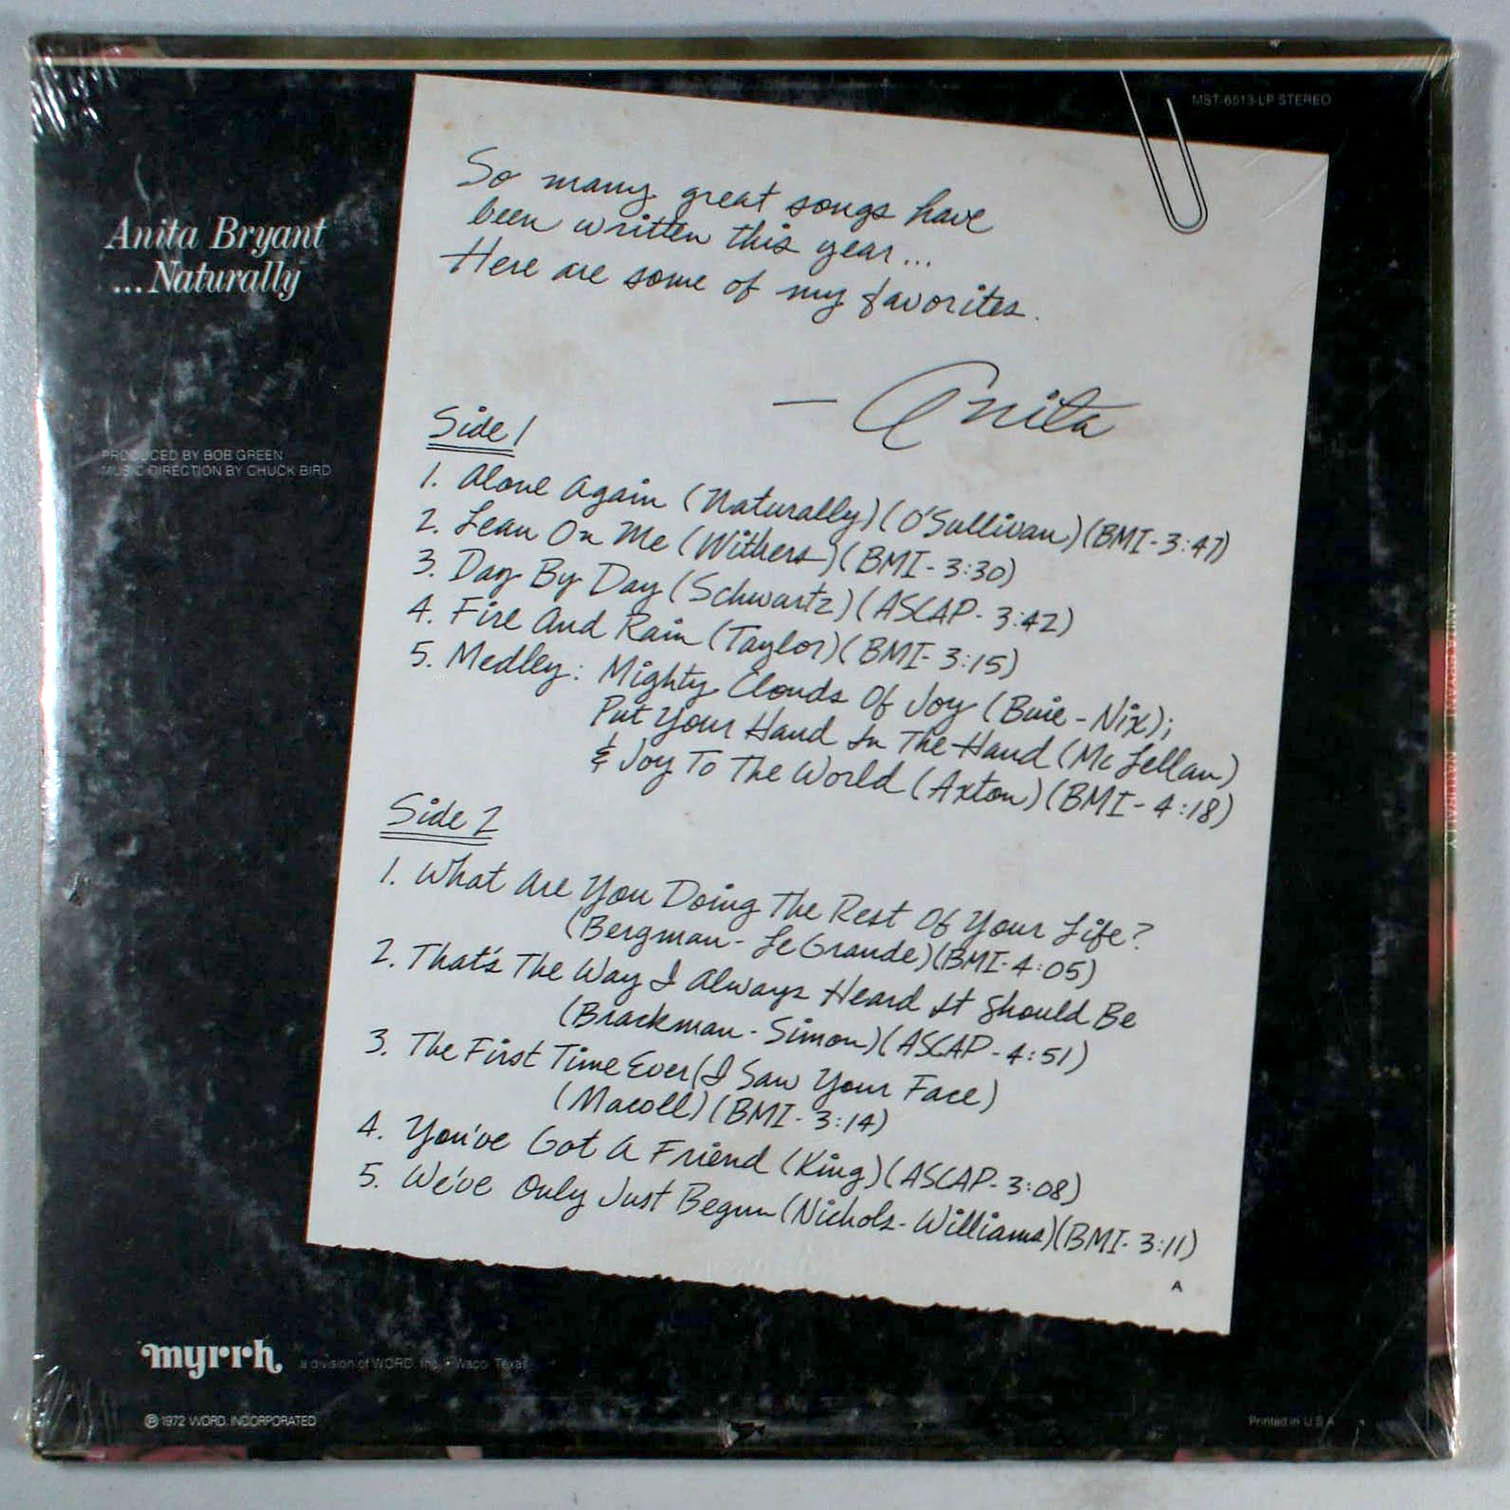 MST-6513-LP STEREO
Anita Bryant
...Naturally
PRODUCED BY BOB GREEN
MUSIC DIRECTION BY CHUCK BIRD
So many great songs have
been written this year...
Here are some of my favorites.
— Anita
Side 1
1. Alone Again (Naturally) (O'Sullivan) (BMI-3:47)
2. Lean On Me (Withers) (BMI-3:30)
3. Day By Day (Schwartz) (ASCAP-3:42)
4. Fire And Rain (Taylor) (BMI-3:15)
5. Medley: Mighty Clouds Of Joy (Buie-Nix);
Put Your Hand In The Hand (McLellan)
& Joy To The World (Axton) (BMI-4:18)
Side 2
1. What Are You Doing The Rest Of Your Life?
(Bergman-LeGrande) (BMI-4:05)
2. That's The Way I Always Heard It Should Be
(Brackman-Simon) (ASCAP-4:51)
3. The First Time Ever (I Saw Your Face)
(Macoll) (BMI-3:14)
4. You've Got A Friend (King) (ASCAP-3:08)
5. We've Only Just Begun (Nichols-Williams) (BMI-3:11)
A
myrrh a division of WORD, Inc. • Waco, Texas
℗ 1972 WORD, INCORPORATED
Printed in U.S.A.